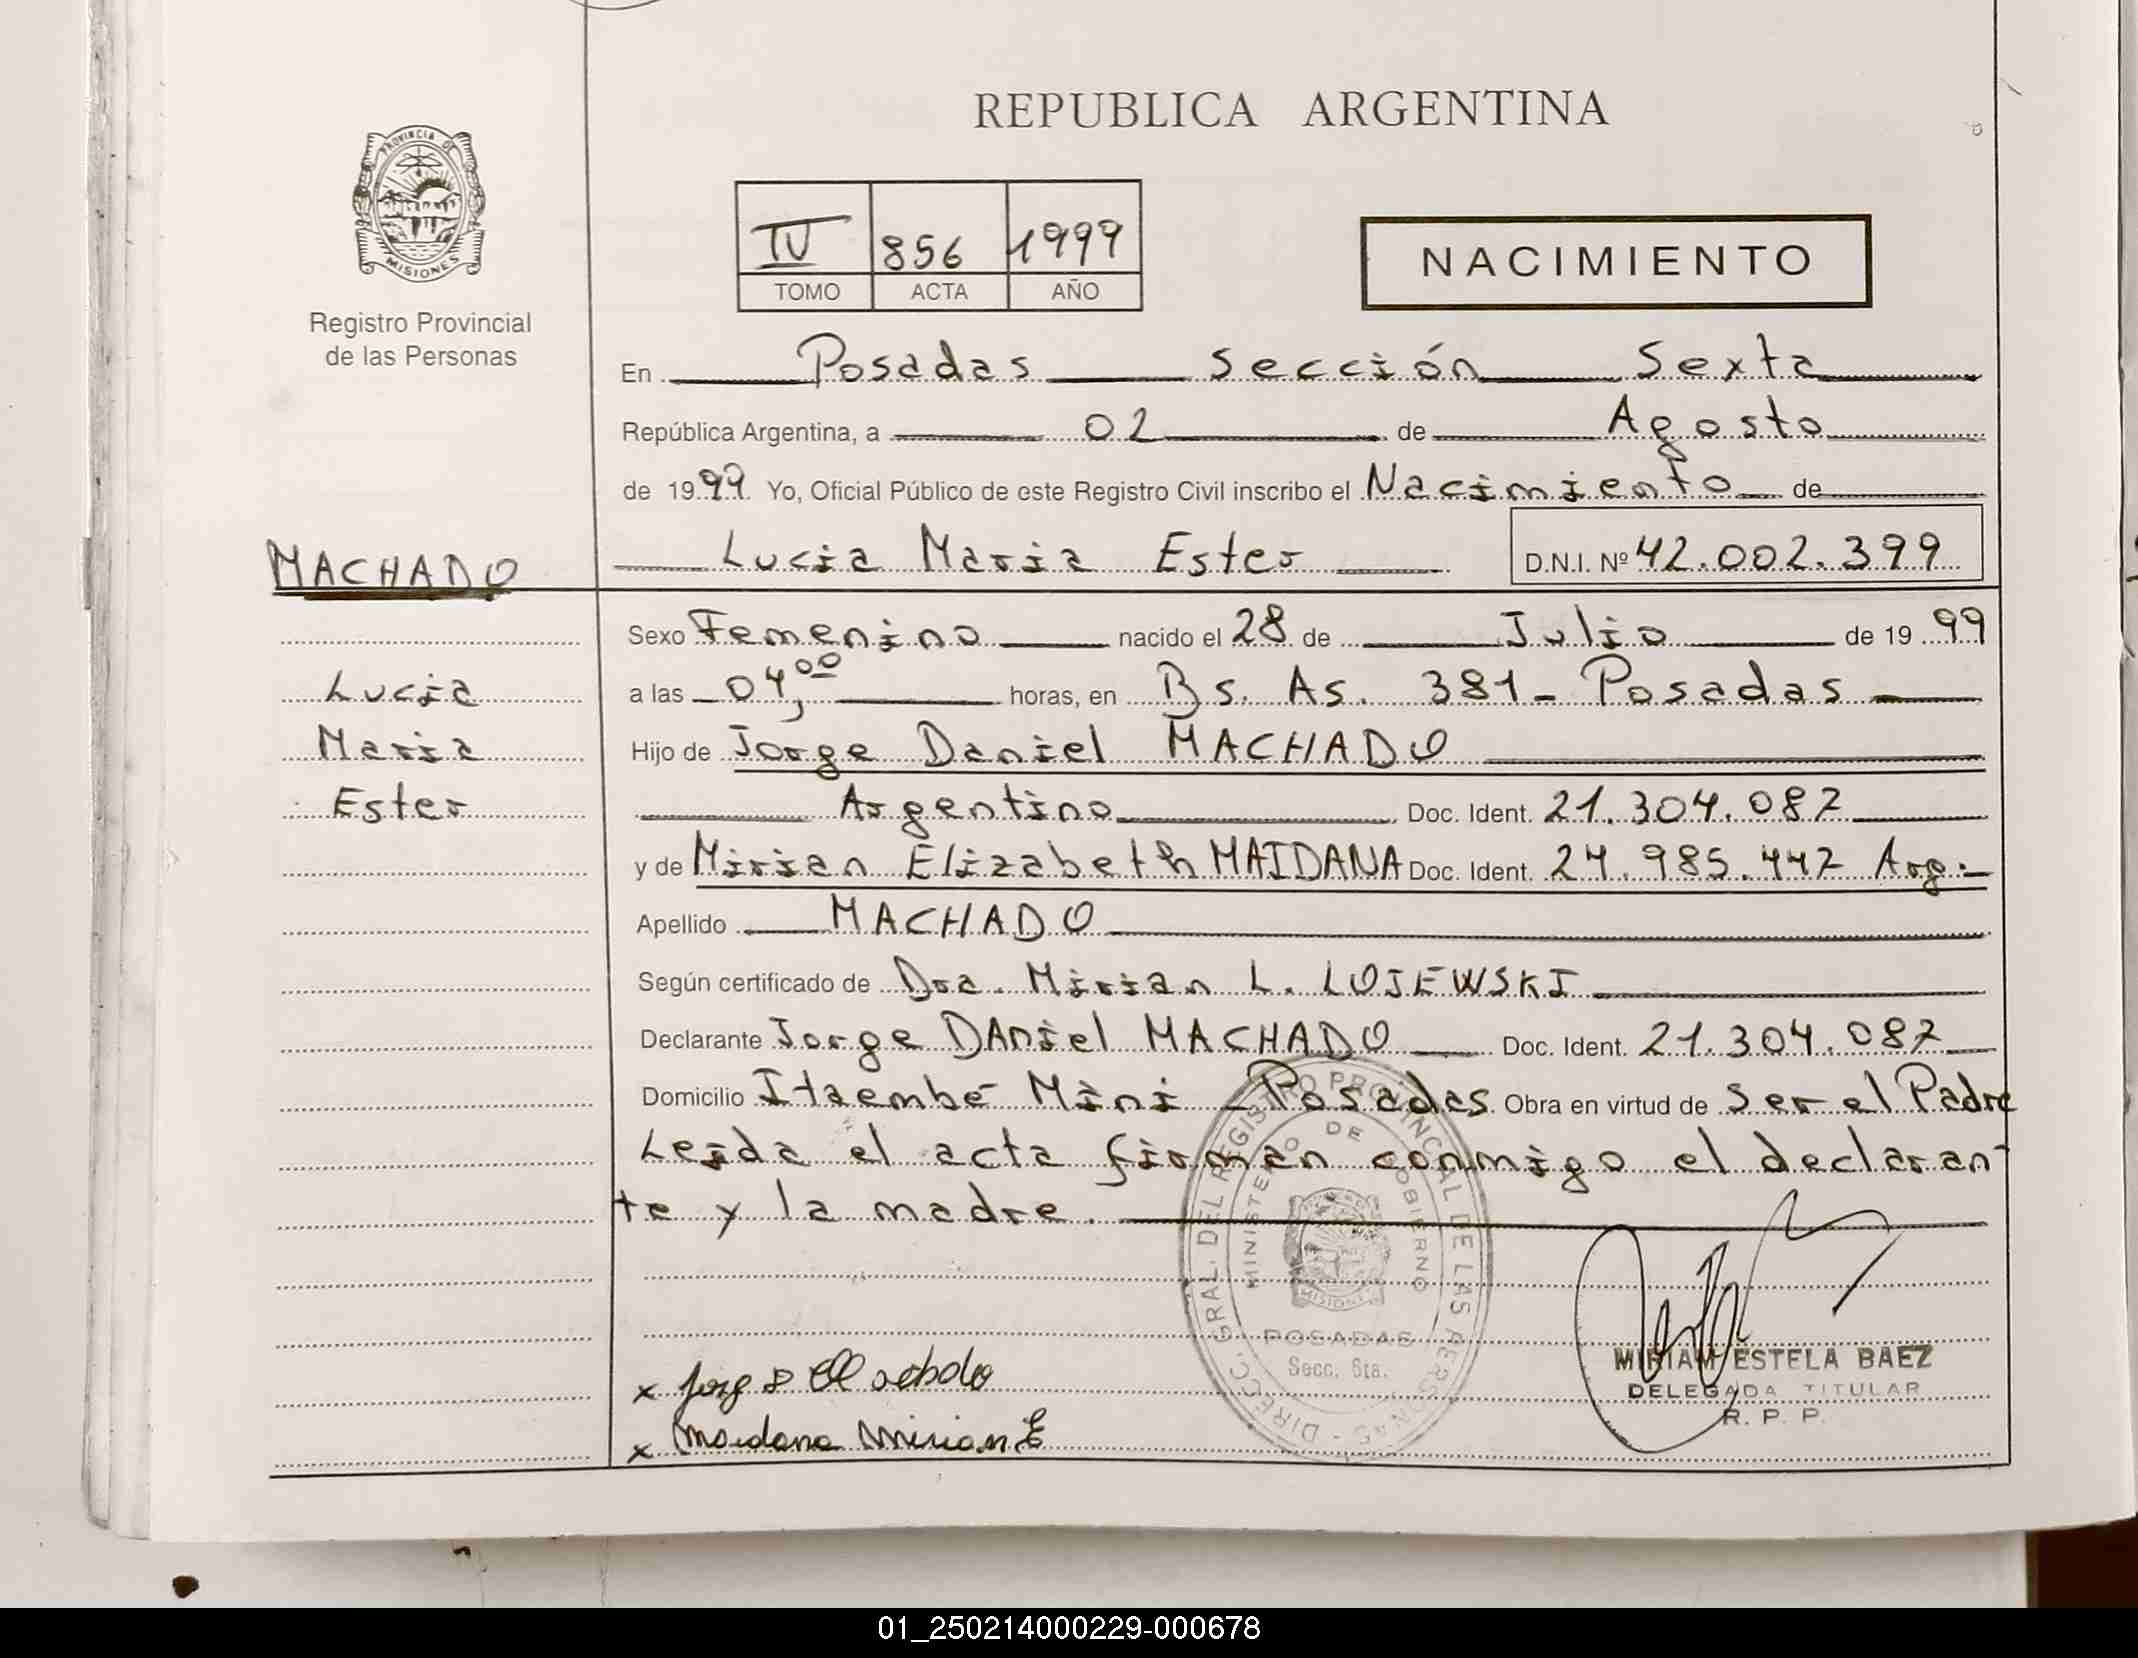 REPUBLICA ARGENTINA
PROVINCIA DE
MISIONES
Registro Provincial
de las Personas
IV 856 1999
TOMO ACTA AÑO
NACIMIENTO
En Posadas Sección Sexta
República Argentina, a 02 de Agosto
de 1999 Yo, Oficial Público de este Registro Civil inscribo el Nacimiento de
MACHADO
Lucia Maria Ester D.N.I. Nº 42.002.399
Sexo Femenino nacido el 28 de Julio de 19 99
Lucia
a las 04,00 horas, en Bs. As. 381 - Posadas
Maria
Hijo de Jorge Daniel MACHADO
Ester
Argentino Doc. Ident. 21.304.087
y de Mirian Elizabeth MAIDANA Doc. Ident. 24.985.447 Arg.
Apellido MACHADO
Según certificado de Dra. Mirian L. LOJEWSKI
Declarante Jorge DAniel MACHADO Doc. Ident. 21.304.087
Domicilio Itaembé Mini - Posadas Obra en virtud de Ser el Padre
Leida el acta firman conmigo el declaran-
te y la madre.
DIRECC. GRAL. DEL REGISTRO PROVINCIAL DE LAS PERSONAS -
MINISTERIO DE GOBIERNO
MISIONES
POSADAS
Secc. 6ta.
x Jorge D Machado
x Maidana Mirian E
MIRIAM ESTELA BAEZ
DELEGADA TITULAR
R. P. P.
01_250214000229-000678